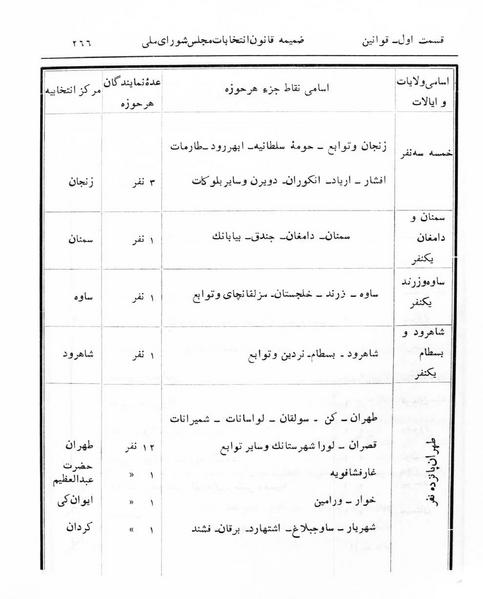 قسمت اول ــ قوانین ضمیمه قانون انتخابات مجلس شورای ملی ۲۶۶
اسامی ولایات و ایالات اسامی نقاط جزء هر حوزه عدهٔ نمایندگان هر حوزه مرکز انتخابیه
خمسه سه نفر زنجان و توابع ــ حومهٔ سلطانیه ــ ابهررود ــ طارمات
افشار ــ ارباد ــ انکوران ــ دویرن و سایر بلوکات ۳ نفر زنجان
سمنان و
دامغان سمنان ــ دامغان ــ جندق ــ بیابانک ۱ نفر سمنان
یکنفر
ساوه و زرند
یکنفر ساوه ــ زرند ــ خلجستان ــ مزلقانچای و توابع ۱ نفر ساوه
شاهرود و
بسطام شاهرود ــ بسطام ــ نردین و توابع ۱ نفر شاهرود
یکنفر
طهران پانزده نفر
طهران ــ کن ــ سولقان ــ لواسانات ــ شمیرانات
قصران ــ لورا شهرستانک و سایر توابع ۱۲ نفر طهران
غار فشافویه ۱ « حضرت عبدالعظیم
خوار ــ ورامین ۱ « ایوان کی
شهریار ــ ساوجبلاغ ــ اشتهارد ــ برقان ــ فشند ۱ » کردان